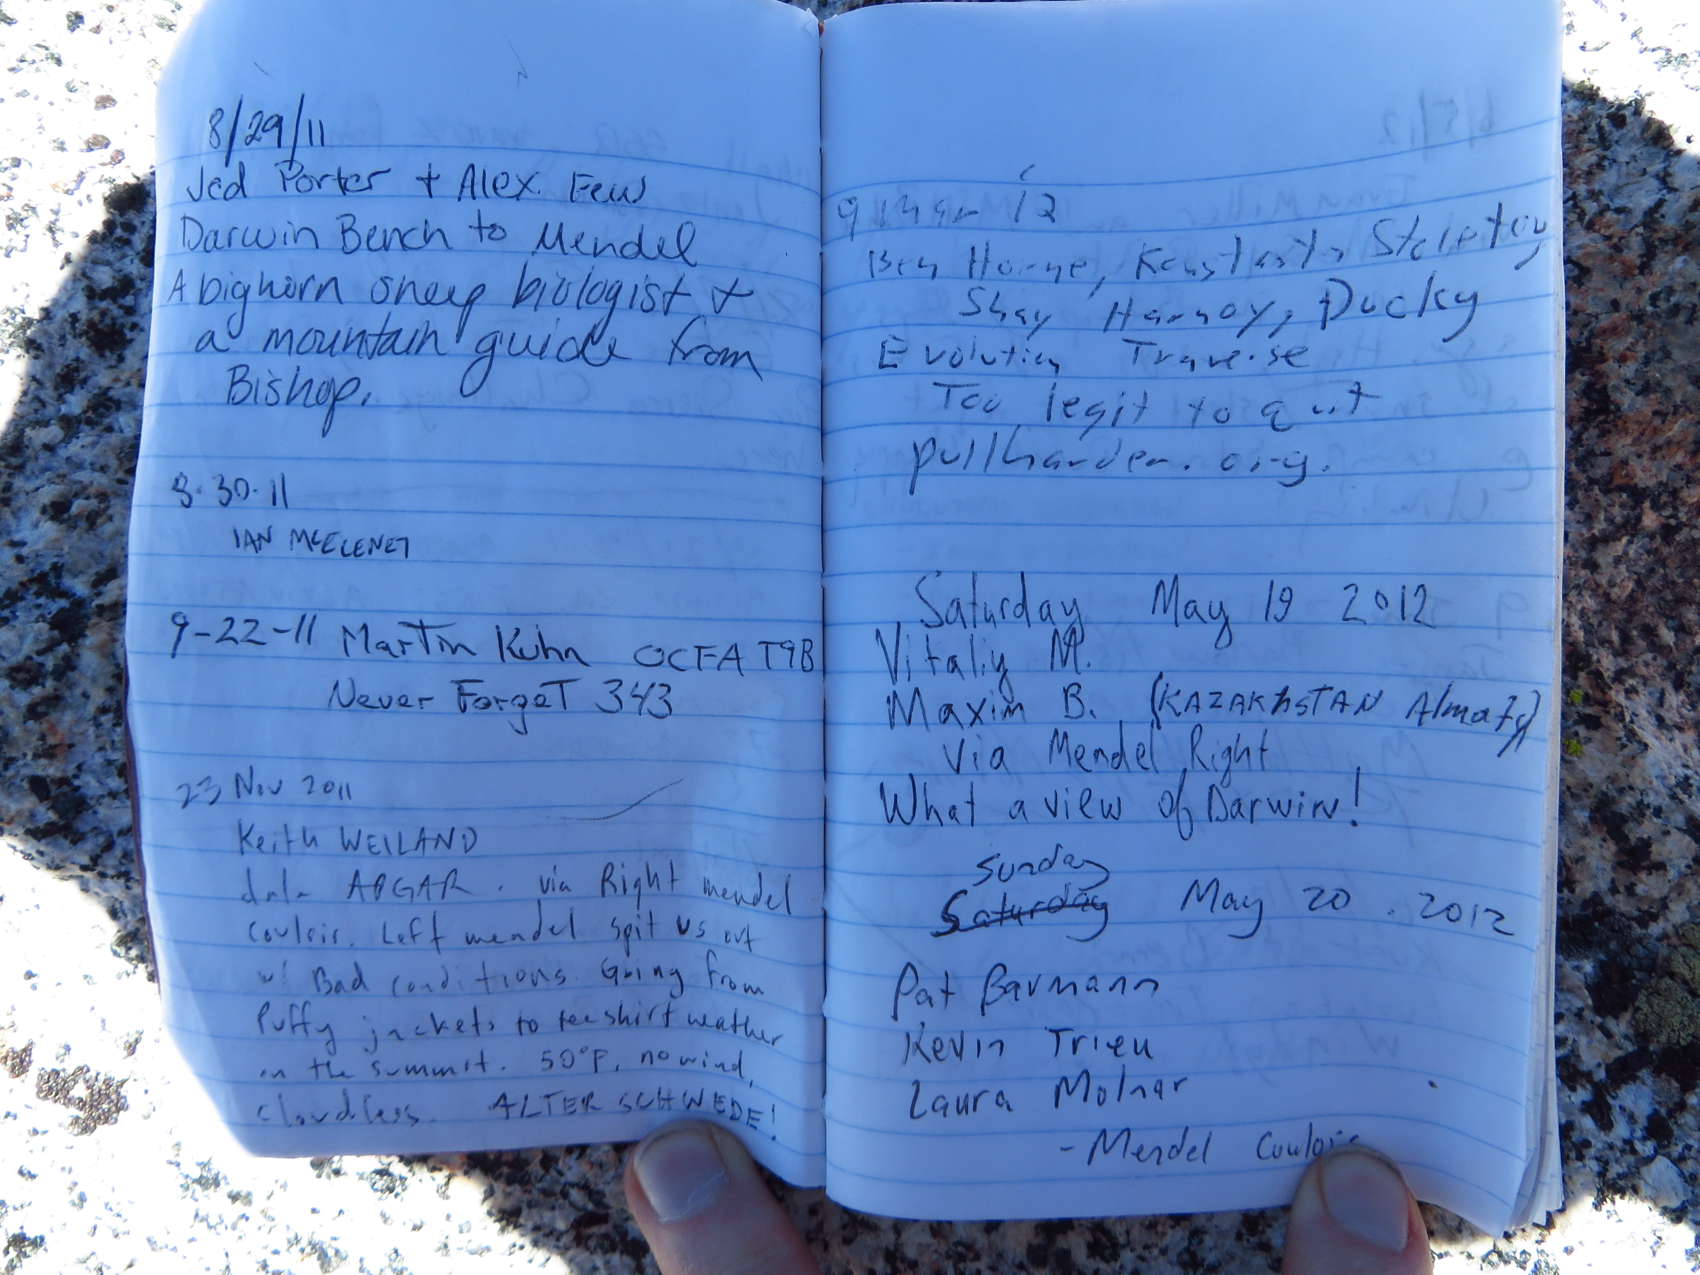 8/29/11
Jed Porter + Alex Few
Darwin Bench to Mendel
A bighorn sheep biologist +
a mountain guide from
Bishop.
8.30.11
IAN
9-22-11 Martin Kuhn OCFA T9B
Never Forget 343
23 Nov 2011
Keith WEILAND
via Right mendel
couloir. Left mendel spit us out
w/ Bad conditions. Going from
Puffy jackets to tee shirt weather
on the summit. 50°F, no wind,
cloudless. ALTER SCHWEDE!
12
Ben Horne,
Shay Harnoy, Ducky
Evolution Traverse
Too legit to quit
pullharder.org.
Saturday May 19 2012
Vitaliy M.
Maxim B. (KAZAKhSTAN Almaty)
Via Mendel Right
What a view of Darwin!
Sunday
Saturday May 20. 2012
Pat
Kevin Trieu
Laura Molnar
- Mendel Couloir